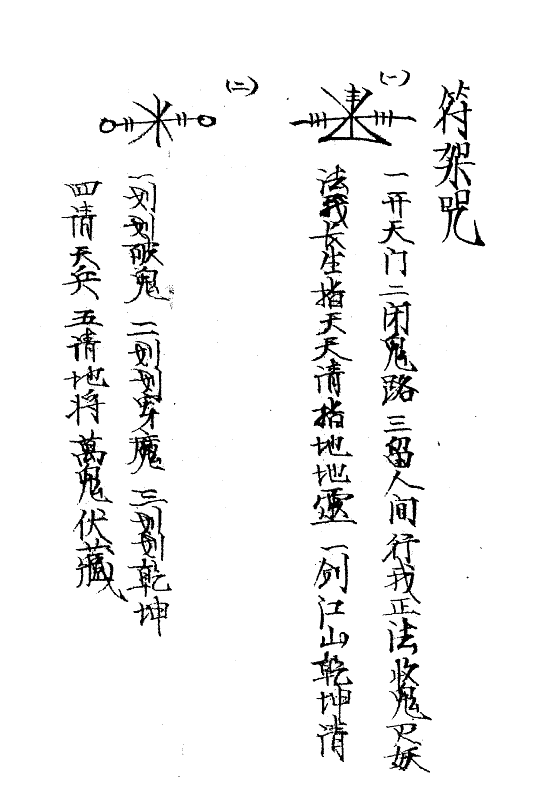 符架咒
(一)
一开天门二闭鬼路三留人间行我正法收鬼灭妖
法我长生指天天清指地地靈一剑江山乾坤清
(二)
一划划破鬼二划划穿魔三划划乾坤
四请天兵五请地将萬鬼伏藏